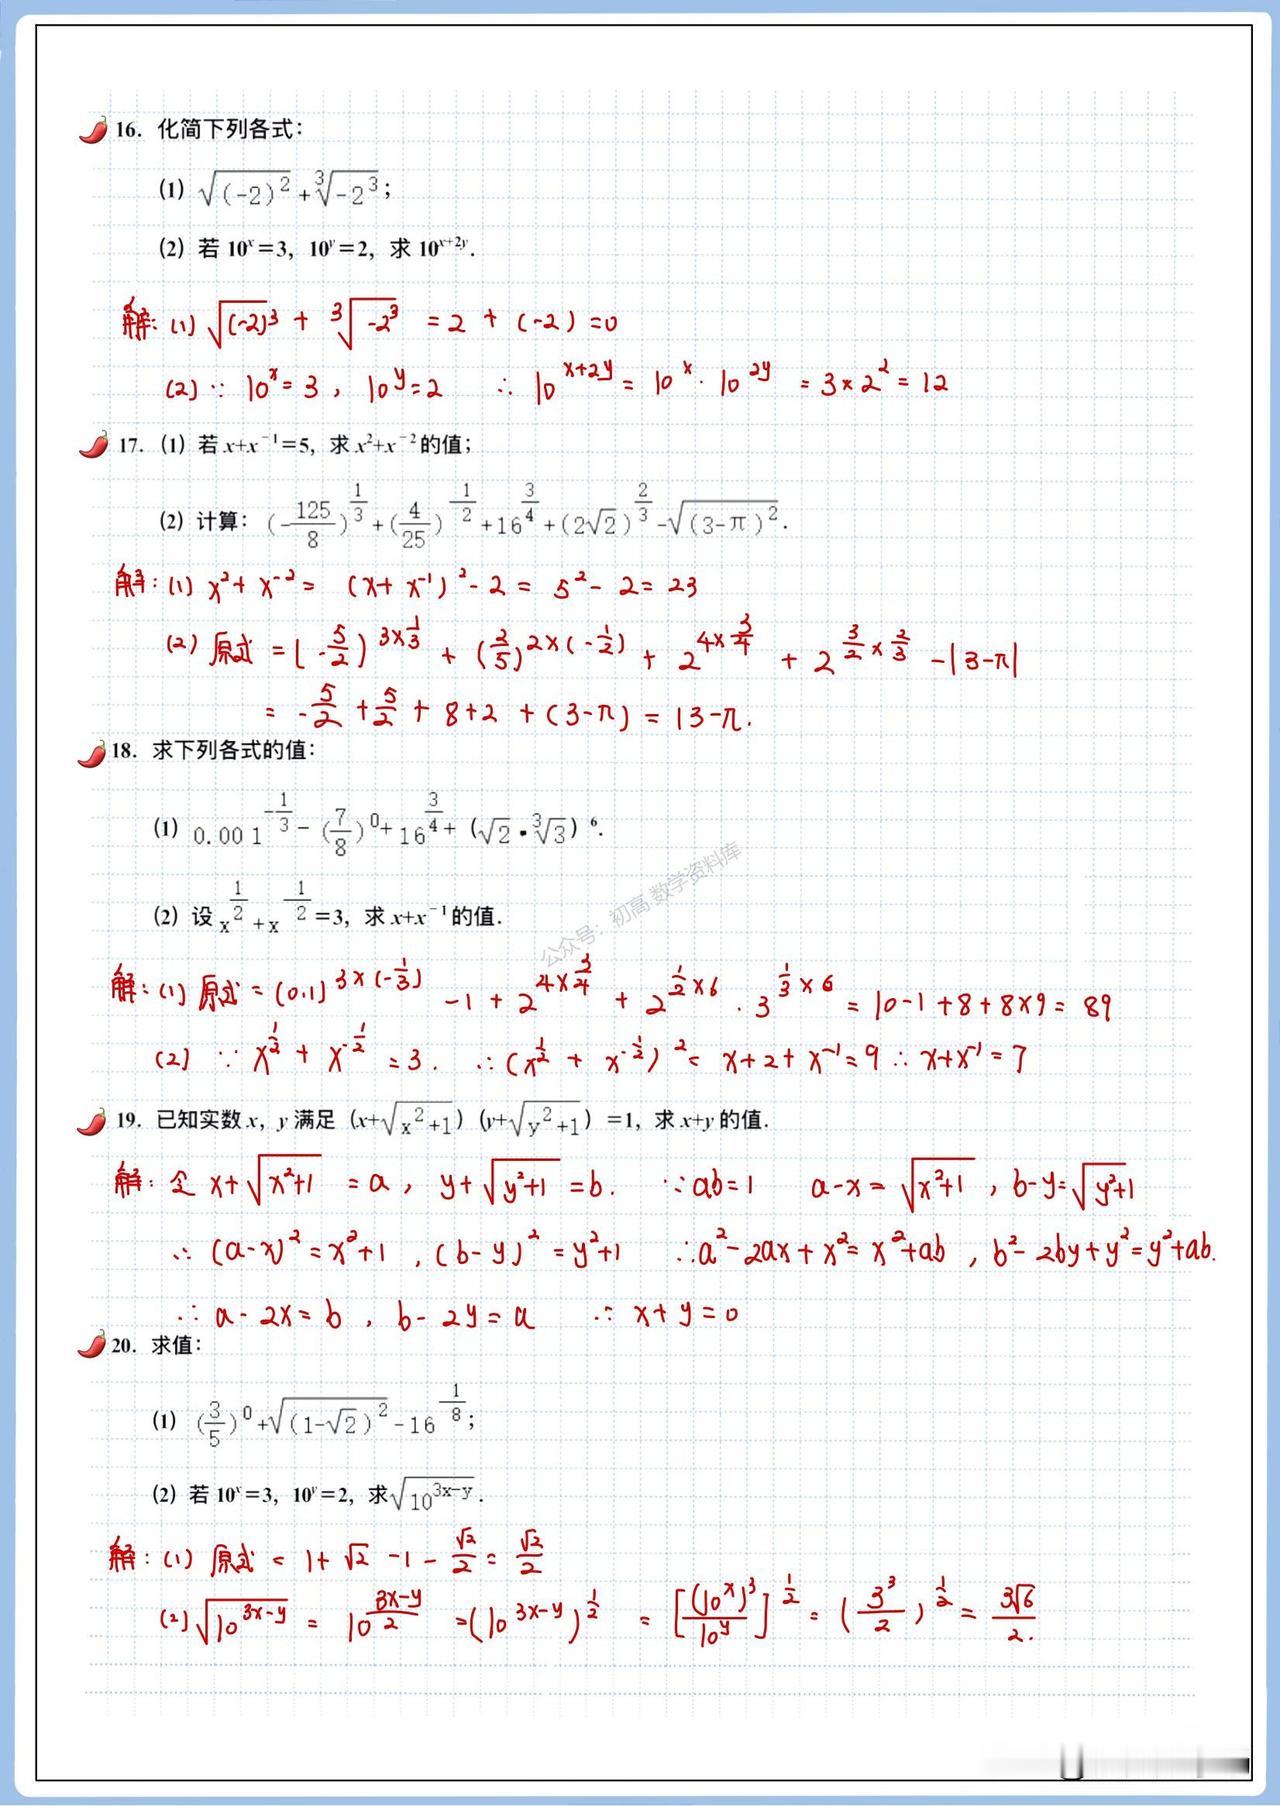 16. 化简下列各式：
(1) √((-2)²) + ³√(-2³)；
(2) 若 10ˣ=3，10ʸ=2，求 10ˣ⁺²ʸ．
解：(1) √(-2)³ + ³√(-2³) = 2 + (-2) = 0
(2) ∵ 10ˣ=3，10ʸ=2 ∴ 10^(x+2y) = 10^x · 10^(2y) = 3×2² = 12
17. (1) 若 x+x⁻¹=5，求 x²+x⁻² 的值；
(2) 计算：(-125/8)^(1/3) + (4/25)^(-1/2) + 16^(3/4) + (2√2)^(2/3) - √((3-π)²)．
解：(1) x²+x⁻² = (x+x⁻¹)²-2 = 5²-2 = 23
(2) 原式 = (-5/2)^(3×1/3) + (2/5)^(2×(-1/2)) + 2^(4×3/4) + 2^(3/2×2/3) - |3-π|
= -5/2 + 5/2 + 8+2 + (3-π) = 13-π.
18. 求下列各式的值：
(1) 0.001^(-1/3) - (7/8)^0 + 16^(3/4) + (√2·³√3)⁶．
(2) 设 x^(1/2) + x^(-1/2) =3，求 x+x⁻¹ 的值．
公众号：初高数学资料库
解：(1) 原式 = (0.1)^(3×(-1/3)) -1 + 2^(4×3/4) + 2^(1/2×6) · 3^(1/3×6) = 10-1+8+8×9 = 89
(2) ∵ x^(1/2) + x^(-1/2) =3. ∴ (x^(1/2) + x^(-1/2))² = x+2+x⁻¹=9 ∴ x+x⁻¹=7
19. 已知实数 x，y 满足 (x+√(x²+1))(y+√(y²+1)) =1，求 x+y 的值．
解：令 x+√(x²+1) = a，y+√(y²+1) = b. ∵ab=1 a-x=√(x²+1)，b-y=√(y²+1)
∴ (a-x)²=x²+1，(b-y)²=y²+1 ∴a²-2ax+x²=x²+ab，b²-2by+y²=y²+ab.
∴ a-2x=b，b-2y=a ∴ x+y=0
20. 求值：
(1) (3/5)^0 + √((1-√2)²) - 16^(-1/8)；
(2) 若 10ˣ=3，10ʸ=2，求√(10^(3x-y))．
解：(1) 原式 = 1+√2 -1 - √2/2 = √2/2
(2) √(10^(3x-y)) = 10^((3x-y)/2) =(10^(3x-y))^(1/2) = [(10^x)³/10^y]^(1/2) = (3³/2)^(1/2) = 3√6/2.